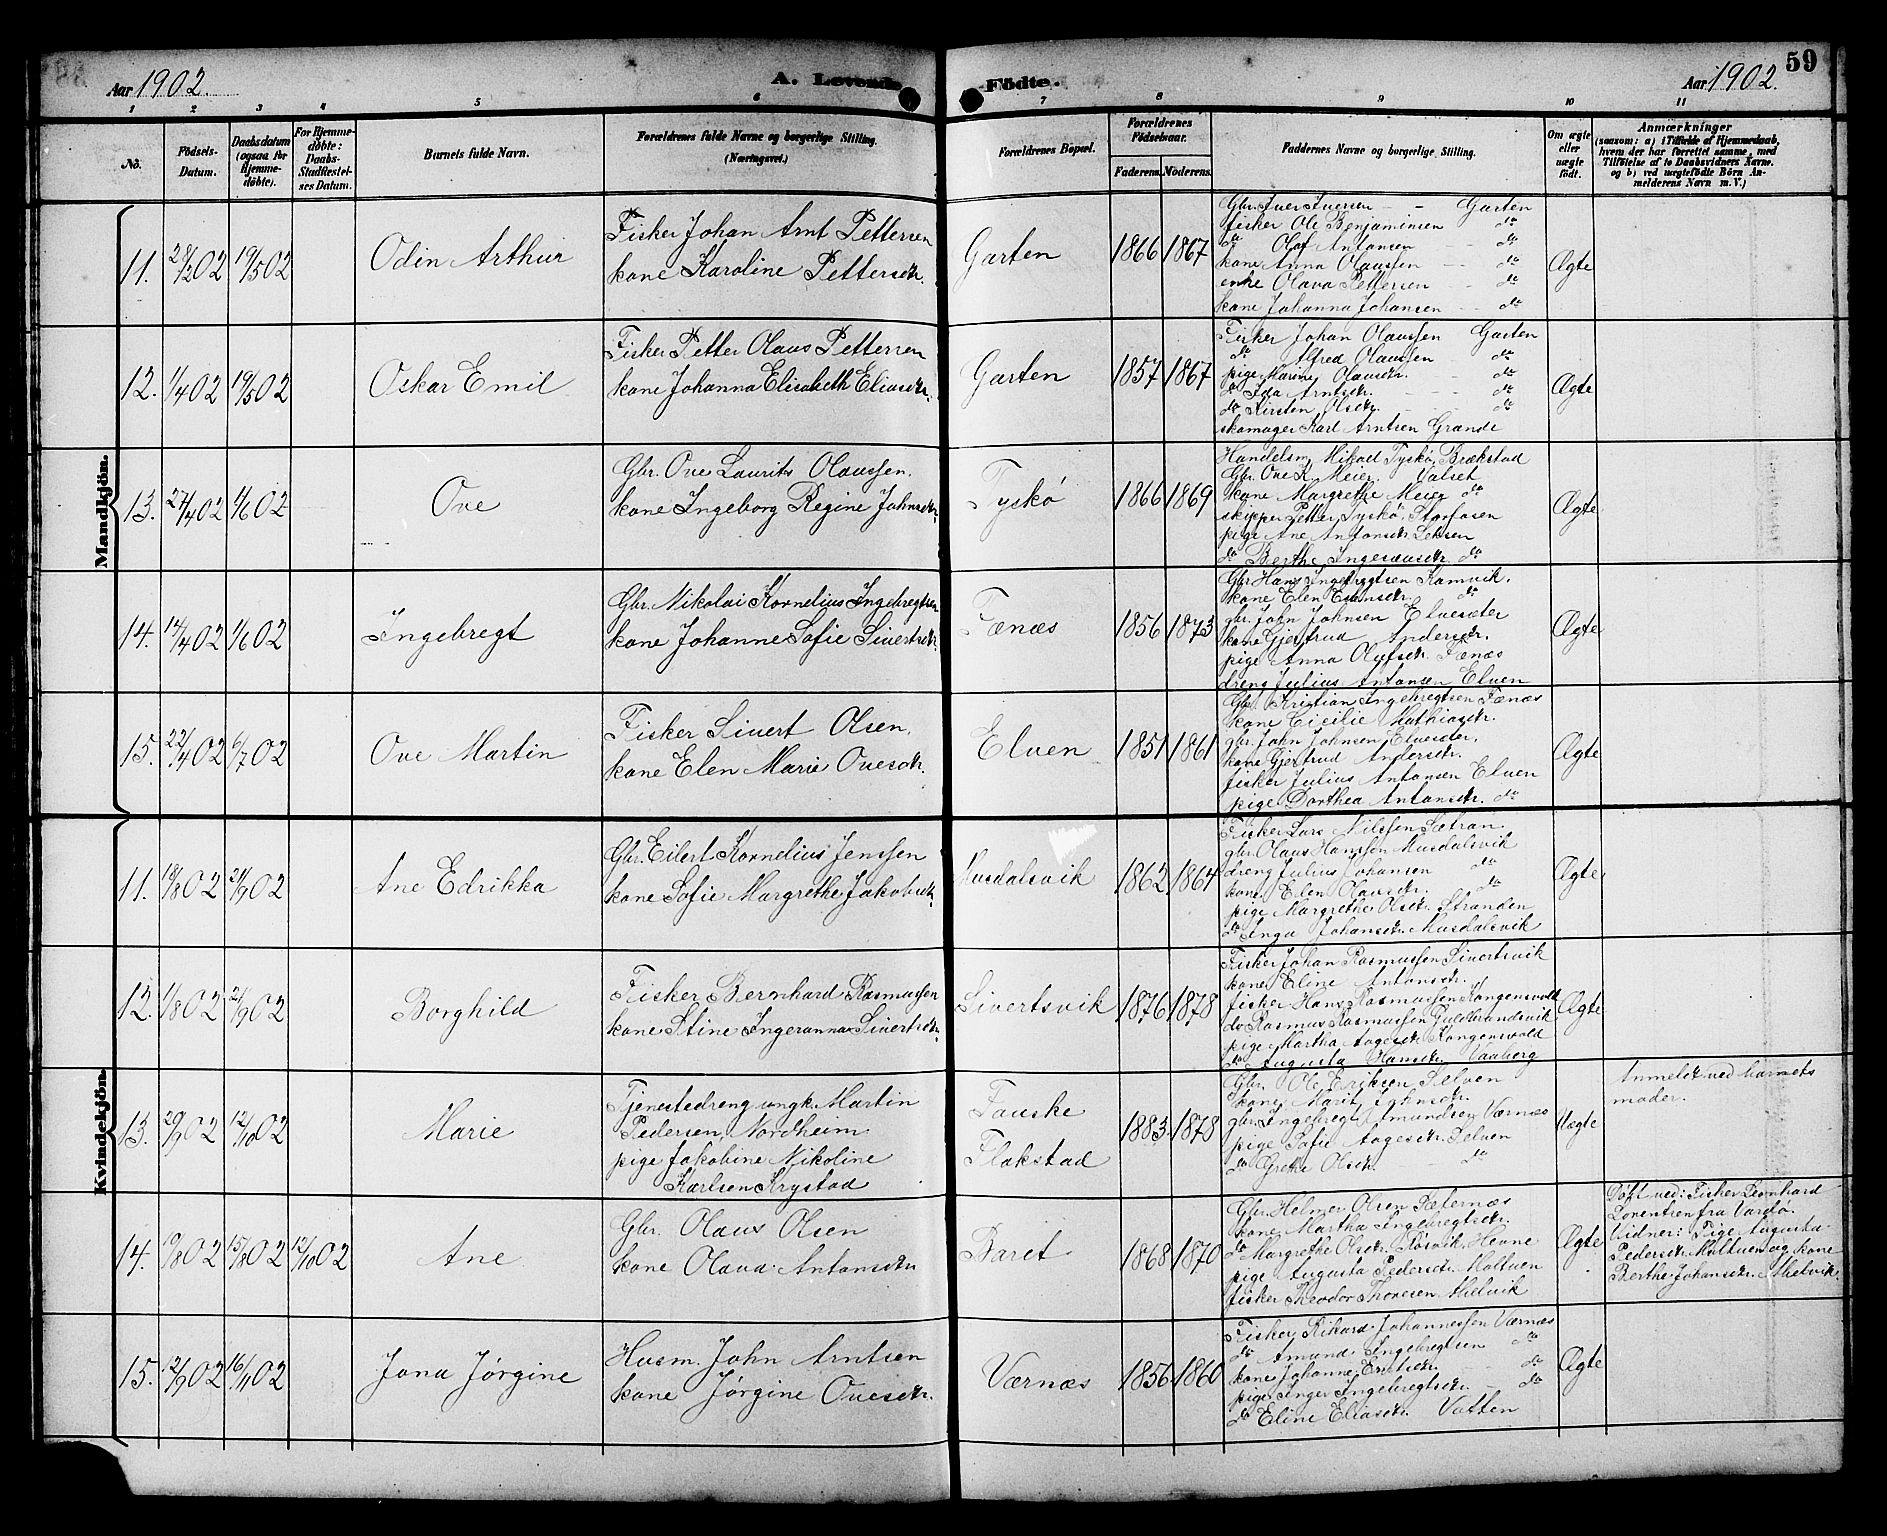 Aar 1902. A. Levende Födte. Aar 1902. 59
1 2 3 4 5 6 7 8 9 10 11
No. Födsels-Datum. Daabsdatum (ogsaa for Hjemme-döbte). For Hjemme-döbte: Daabs-Stadfæstel-ses Datum. Barnets fulde Navn. Forældrenes fulde Navne og borgerlige Stilling. (Næringsvei.) Forældrenes Bopæl. Forældrenes Födselsaar. Faderens. Moderens. Faddernes Navne og borgerlige Stilling. Om ægte eller uægte födt. Anmærkninger (saasom: a) i Tilfælde af Hjemmedaab, hvem der har forrettet samme, med Tilföielse af to Daabsvidners Navne. og b) ved uægtefödte Börn An-melderens Navn m. V.)
Mandkjön.
11. 28/2 02 19/5 02 Odin Arthur
Fisker Johan Arnt Pettersen
kone Karoline Pettersdtr.
Garten 1866 1867
Gbr. Iver Iversen - - Garten
fisker Ole Benjaminsen do
do Olaf Antonsen - - do
kone Anna Olaussen - - do
enke Olava Pettersen - - do
kone Johanna Johansen - - do
Ægte
12. 1/4 02 19/5 02 Oskar Emil
Fisker Petter Olaus Pettersen
kone Johanna Elisabeth Eliasdtr.
Garten 1857 1867
Fisker Johan Olaussen Garten
do Alfred Olaussen - do
pige Marine Olausdtr. - do
do Ida Arntsdtr. - - - do
do Kirsten Olsdtr. - - - do
skomager Karl Arntsen Grande
Ægte
13. 27/4 02 1/6 02 Ove
Gbr. Ove Laurits Olaussen.
kone Ingeborg Regine Johnsdtr.
Tyskø 1866 1869
Handelsm. Mikael Tyskø, Brækstad
Gbr. Ove K. Meier, Valset
kone Margrethe Meier do
skipper Petter Tyskø, Storfosen
pige Ane Antonsdtr. Leksen
do Berthe do
Ægte
14. 14/4 02 1/6 02 Ingebregt
Gbr. Nikolai Kornelius Ingebregtsen
kone Johanne Sofie Sivertsdtr.
Fænæs 1856 1873
Gbr. Hans Ingebregtsen Kamvik.
kone Elen do
gbr. John Johnsen Elvesæter
kone Gjertrud Andersdtr.
pige Anna Olufsdtr. Fænæs
dreng Julius Antonsen Elven
Ægte
15. 22/4 02 6/7 02 Ove Martin
Fisker Sivert Olsen,
kone Elen Marie Ovesdtr.
Elven 1851 1861
Gbr. Kristian Ingebregtsen Fænæs
kone Cicilie Mathiasdtr.
gbr. John Johnsen, Elvesæter,
kone Gjertrud Andersdtr.
fisker Julius Antonsen Elven
pige Dorthea Antonsdtr. do
Ægte
Kvindekjön.
11. 18/8 02 21/9 02 Ane Edrikka
Gbr. Eilert Kornelius Jenssen
kone Sofie Margrethe Jakobsdtr.
Musdalsvik 1862 1864
Fisker Lars Nilssen Sætran.
gbr. Olaus Hanssen Musdalsvik
dreng Julius Johansen do
kone Elen Olausdtr. do
pige Margrethe Olsdtr. Stranden
do Inga Johansdtr. Musdalsvik
Ægte
12. 1/8 02 21/9 02 Borghild
Fisker Bernhard Rasmussen
kone Stine Ingeranna Sivertsdtr.
Sivertsvik 1876 1878
Fisker Johan Rasmussen Sivertsvik
kone Eline Antonsdtr.
fisker Hans Rasmussen Kongensvold
do Rasmus Rasmussen Guldbrandsvik
pige Martha Aagesdtr. Kongensvold
do Augusta Hansdtr. Vaaberg
Ægte
13. 29/9 02 12/10 02 Marie
Tjenestedreng ungk. Martin
Pedersen, Nordheim
pige Jakobine Nikoline
Karlsen Krystad
Fauske
Flakstad
1883. 1878
Gbr. Ole Eriksen Selven
kone Marit Johnsdtr.
gbr. Ingebregt Amundsen Værnæs
pige Sofie Aagesdtr. Selven
do Grethe Olsdtr. - - do
Uægte
Anmeldt ved barnets
moder.
14. 19/8 02 15/8 02 12/10 02 Ane
Gbr. Olaus Olsen
kone Olava Antonsdtr
Baret 1868 1870
Gbr. Helmer Olsen
kone Martha Ingebregtsdtr.
do Margrethe Olsdtr. Røsvik, Hevne
pige Augusta Pedersdtr. Moltuen
fisker Theodor Thoresen Melvik
Ægte
Døbt ved: Fisker Leonhard
Lorentsen fra Vardø.
Vidner: Pige Augusta
Pedersdtr. Moltuen og kone
Berthe Johansdtr. Melvik.
15. 12/9 02 16/11 02 Jona Jørgine
Husm. John Arntsen
kone Jørgine Ovesdtr.
Værnæs 1856 1860
Fisker Rikard Johannessen Værnæs
do Amund Ingebregtsen do
kone Johanne Ericksdtr. - do
pige Inger Ingebregtsdtr. - do
do Eline Eliasdtr. Vatten
Ægte